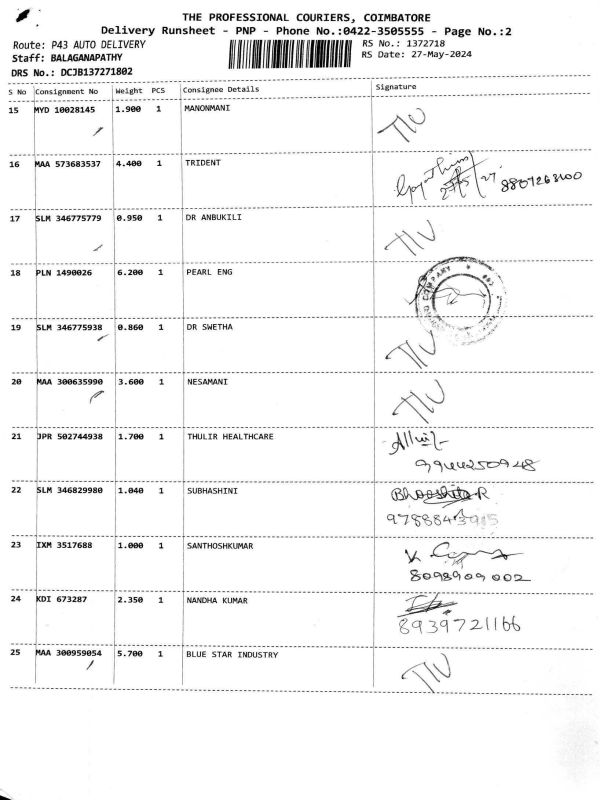 THE PROFESSIONAL COURIERS, COIMBATORE
Delivery Runsheet - PNP - Phone No.:0422-3505555 - Page No.:2
Route: P43 AUTO DELIVERY
RS No.: 1372718
Staff: BALAGANAPATHY
RS Date: 27-May-2024
DRS No.: DCJB137271802
S No Consignment No Weight PCS Consignee Details Signature
15 MYD 10028145 1.900 1 MANONMANI
16 MAA 573683537 4.400 1 TRIDENT 8807263100
17 SLM 346775779 0.950 1 DR ANBUKILI
18 PLN 1490026 6.200 1 PEARL ENG
COMPANY
19 SLM 346775938 0.860 1 DR SWETHA
20 MAA 300635990 3.600 1 NESAMANI
21 JPR 502744938 1.700 1 THULIR HEALTHCARE
9944250948
22 SLM 346829980 1.040 1 SUBHASHINI
23 IXM 3517688 1.000 1 SANTHOSHKUMAR
8098909002
24 KDI 673287 2.350 1 NANDHA KUMAR
8939721166
25 MAA 300959054 5.700 1 BLUE STAR INDUSTRY